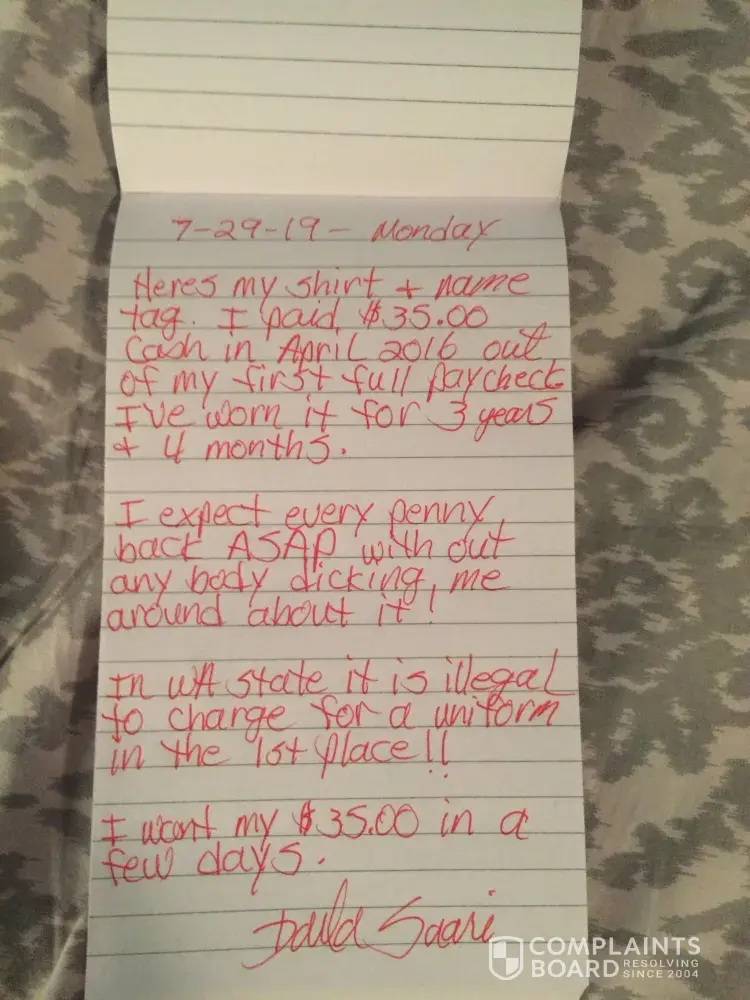 7-29-19- Monday
Heres my shirt + name
tag. I paid $35.00
Cash in April 2016 out
of my first full paycheck
I've worn it for 3 years
+ 4 months.
I expect every penny
back ASAP with out
any body dicking me
around about it!
In WA state it is illegal
to charge for a uniform
in the 1st place!!
I want my $35.00 in a
few days.
Saari
COMPLAINTS
BOARD RESOLVING
SINCE 2004